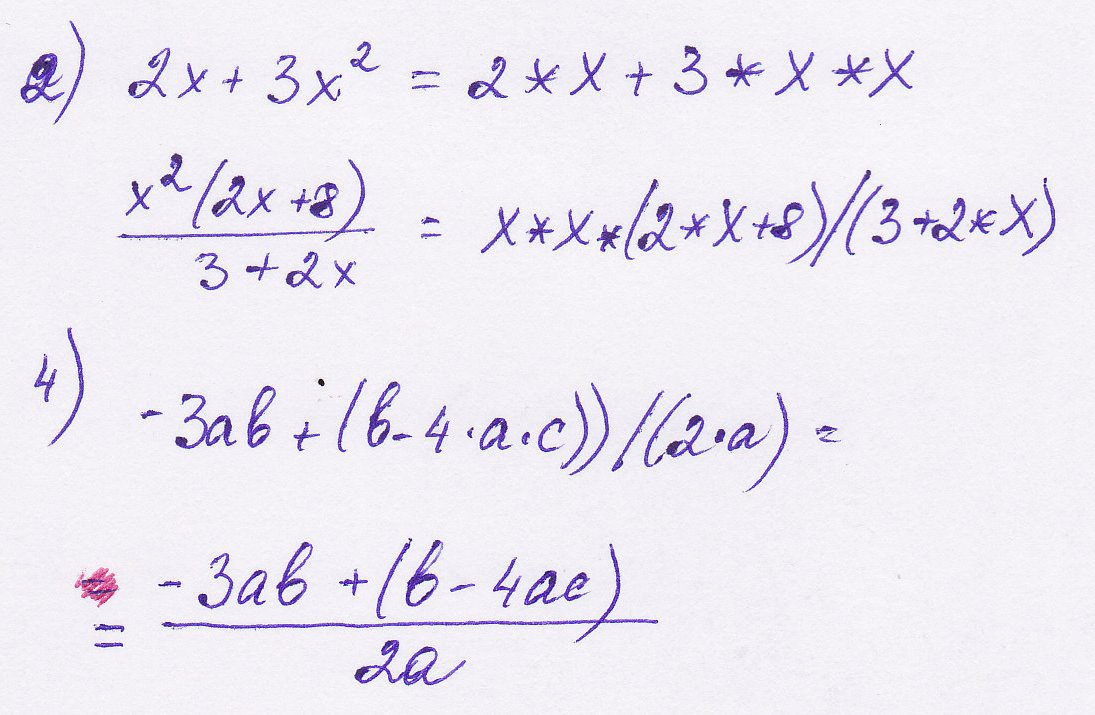 2) 2x + 3x² = 2 * X + 3 * X * X
x²(2x+8)
/ 3 + 2x = X*X*(2*X+8)/(3+2*X)
4) -3ab + (b - 4·a·c))/(2·a) =
= -3ab + (b - 4ac)
/ 2a